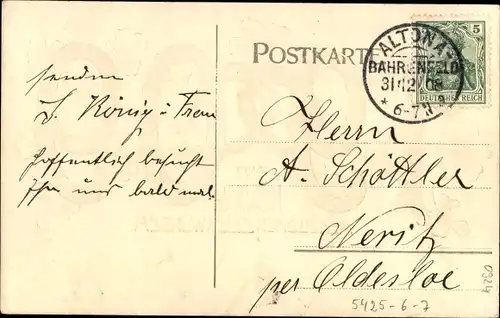 senden
L. König u. Frau
hoffentlich besucht
Ihr uns bald mal.
POSTKARTE
ALTONA
BAHRENFELD
31 12 08
* 6-7 N
5
DEUTSCHES REICH
Herrn
A. Schöttler
Neritz
per Oldesloe
0324
5425-6-7